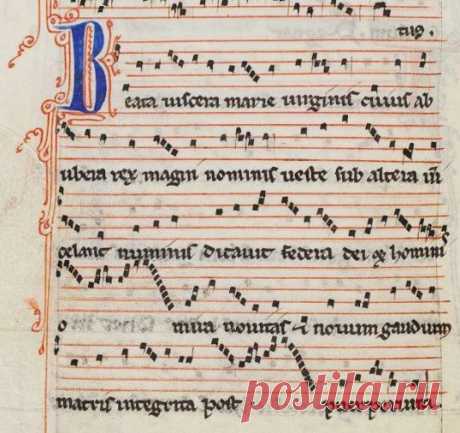 tus.
Beata uiscera marie uirginis cuius ab
ubera rex magni nominis ueste sub altera uim
celans numinis dictauit federa dei et hominis
o mira nouitas & nouum gaudium
matris integrita post puerperium
postila.ru